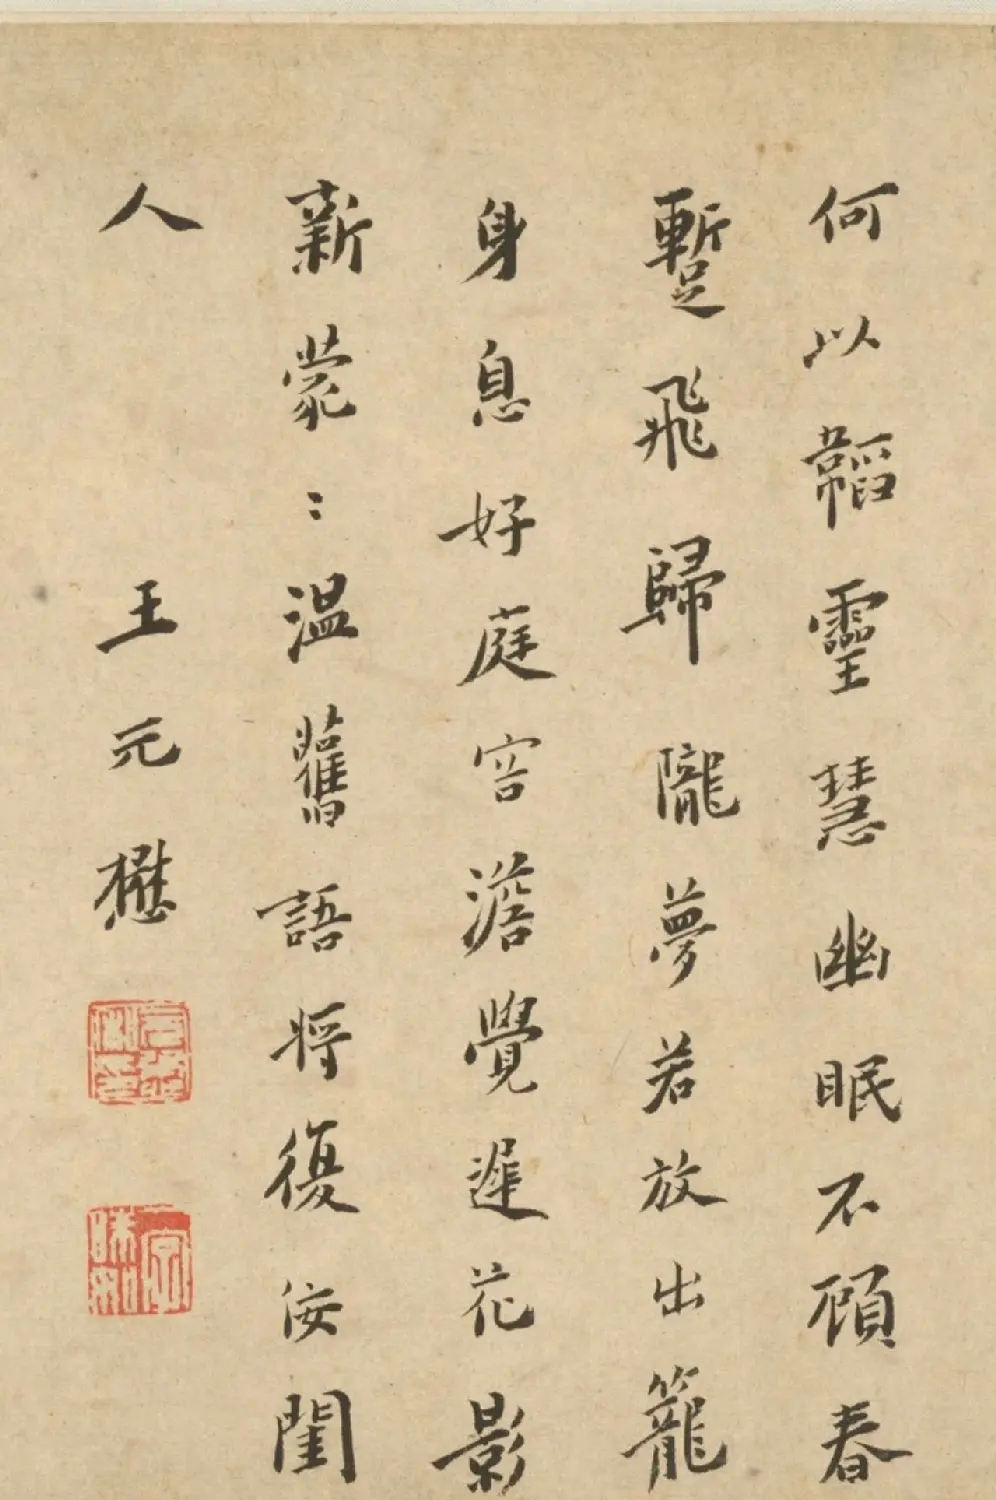 何以韜靈慧幽眠不顧春
蹔飛歸隴夢若放出籠
身息好庭容澹覺遲花影
新蒙〻溫舊語將復佞閨
人 王元懋